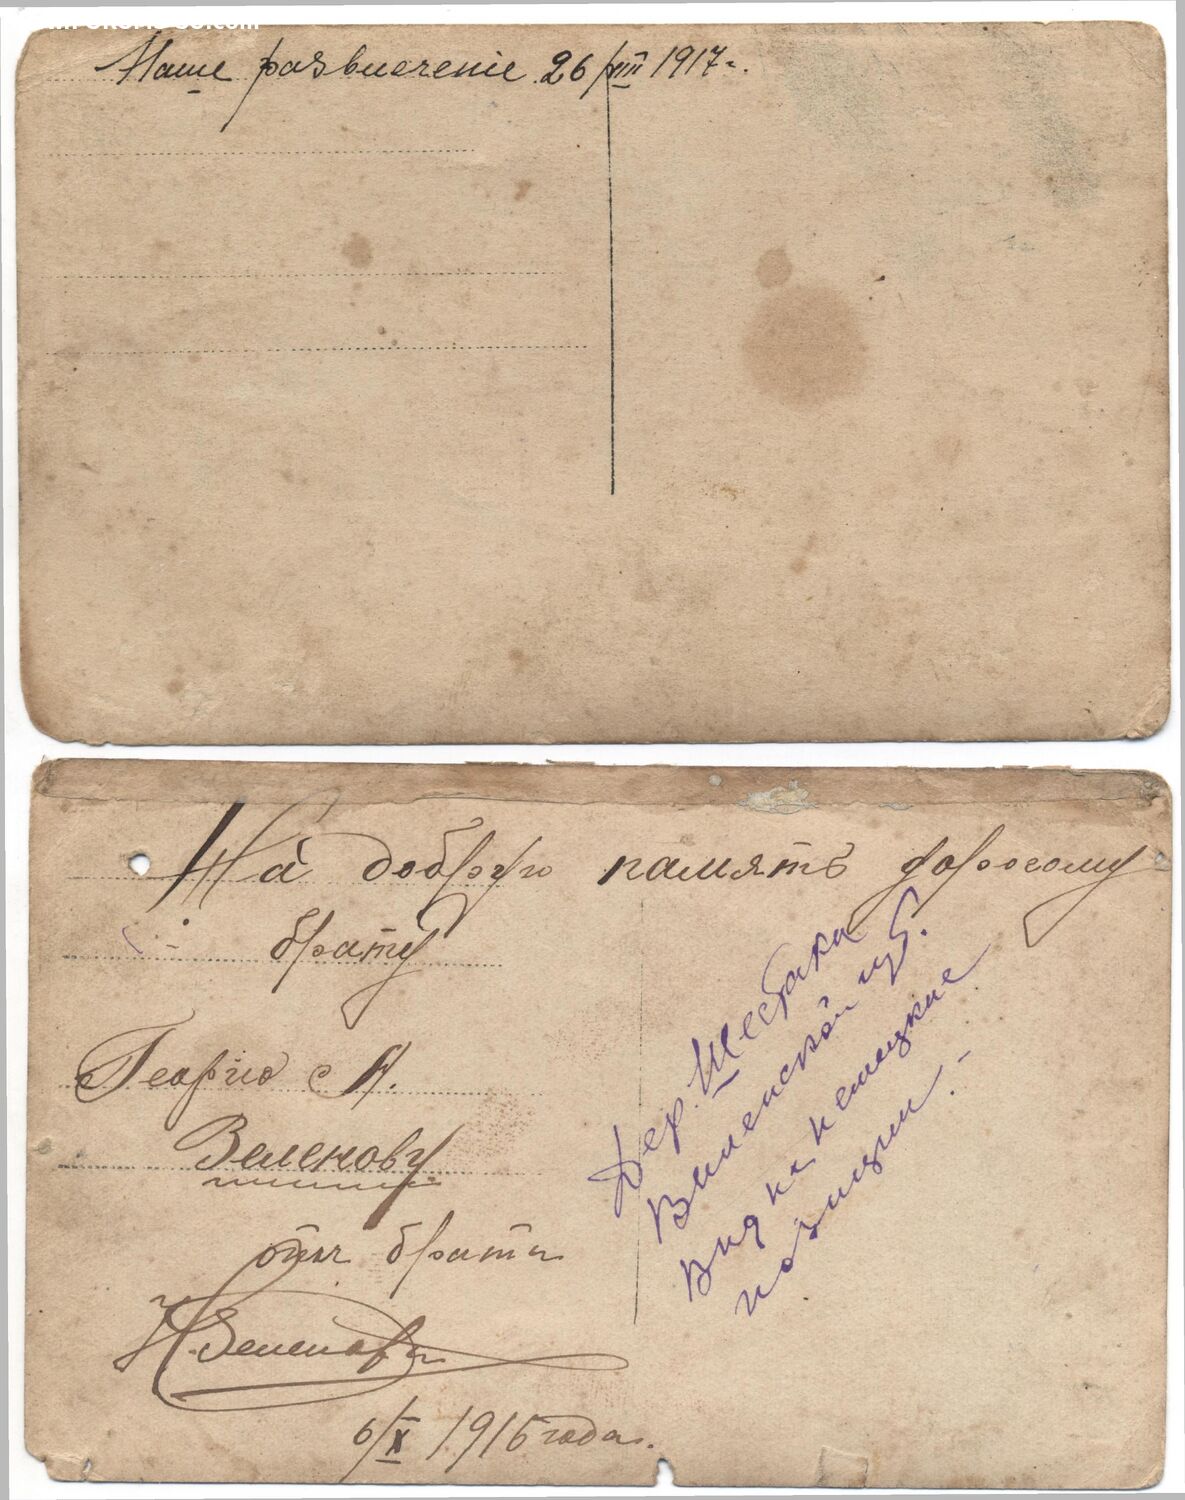 Наше развлеченіе 26/VIII 1917 г.
На добрую память дорогому
брату
Георгію с А.
Зеленову.
отъ брата
Н. Зеленова
6/X 1916 года.
Дер. Шестаки
Виленской губ.
Вид на немецкие
позиции.-